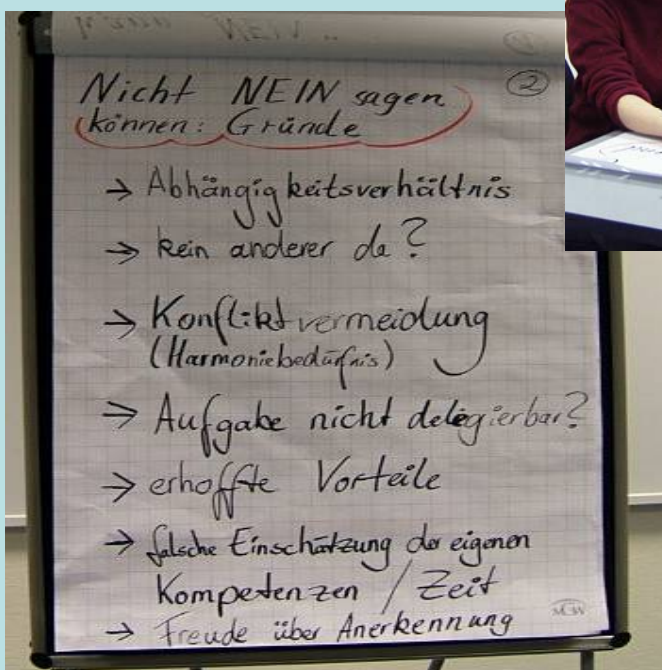 NEIN ..
②
Nicht NEIN sagen
können: Gründe
→ Abhängigkeitsverhältnis
→ kein anderer da?
→ Konfliktvermeidung
(Harmoniebedürfnis)
→ Aufgabe nicht delegierbar?
→ erhoffte Vorteile
→ falsche Einschätzung der eigenen
Kompetenzen / Zeit
→ Freude über Anerkennung